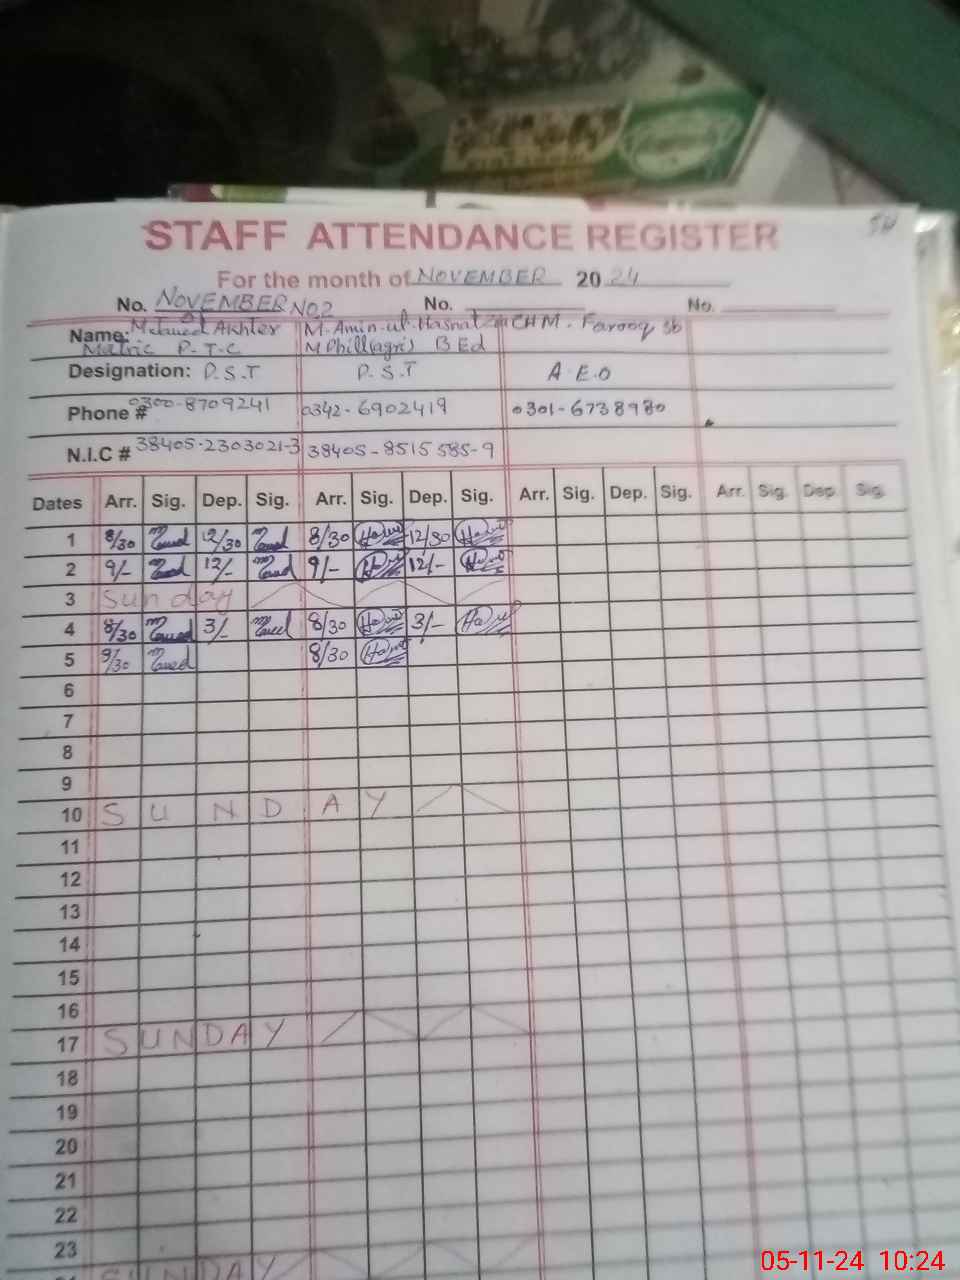 STAFF ATTENDANCE REGISTER
For the month of NOVEMBER 2024
No. NOVEMBER NO2 No. No.
Name: Akhter M. Amin-ul-Hasnat CH M. Farooq Sb
Matric P-T-C M Phill(agri) B Ed
Designation: P.S.T P.S.T A.E.O
Phone # 0300-8709241 0342-6902419 0301-6738980
N.I.C # 38405-2303021-3 38405-8515585-9
Dates Arr. Sig. Dep. Sig. Arr. Sig. Dep. Sig. Arr. Sig. Dep. Sig. Arr. Sig. Dep. Sig.
1 8/30 12/30 8/30 12/30
2 9/- 12/- 9/- 12/-
3 Sunday
4 8/30 3/- 8/30 3/-
5 9/30 8/30
6
7
8
9
10 SUNDAY
11
12
13
14
15
16
17 SUNDAY
18
19
20
21
22
23
SUNDAY
05-11-24 10:24